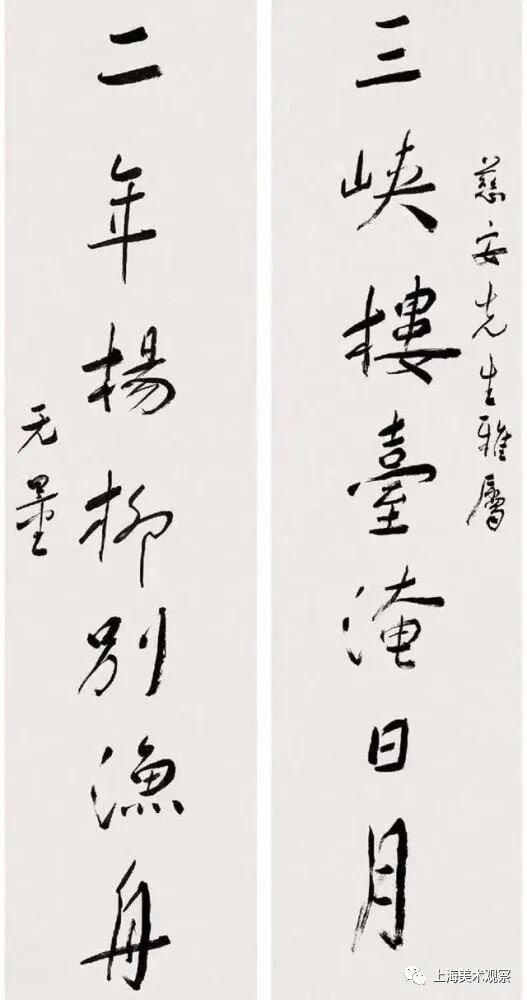 慈安先生雅属
三峡樓臺淹日月
二年楊柳別漁舟
无量
上海美术观察